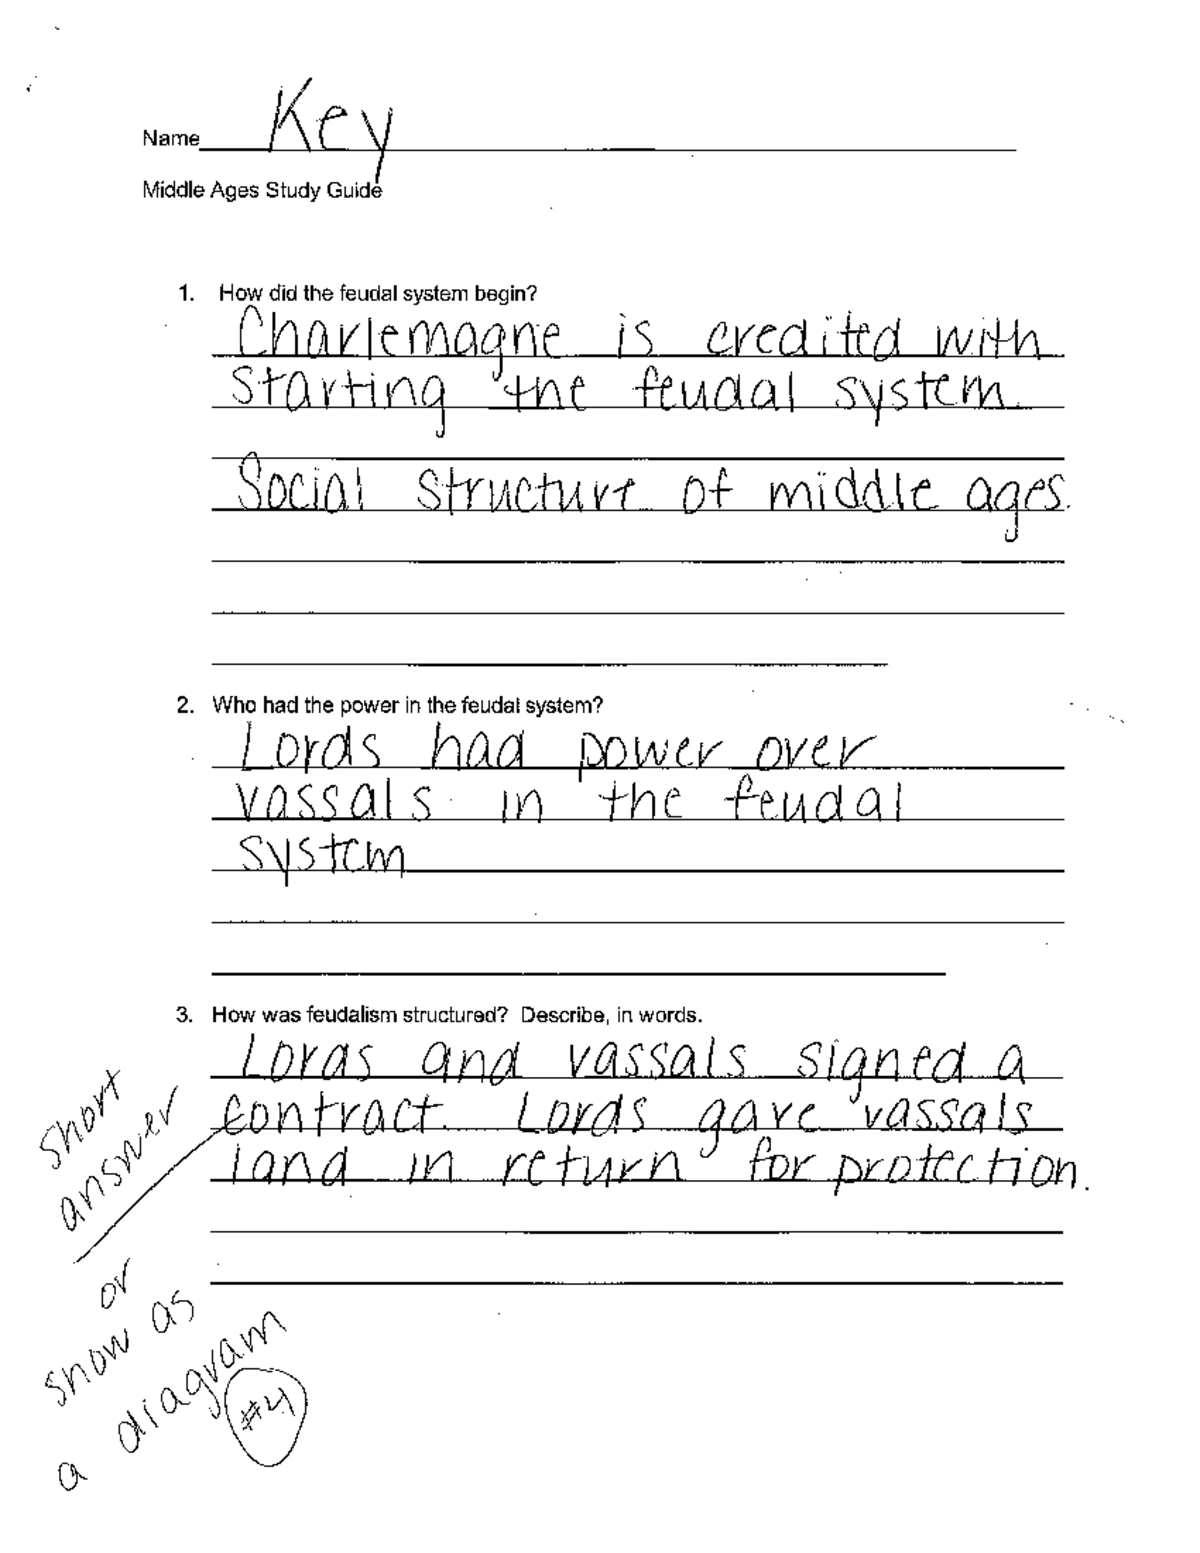 Name Key
Middle Ages Study Guide
1. How did the feudal system begin?
Charlemagne is credited with
starting the feudal system.
Social structure of middle ages.
2. Who had the power in the feudal system?
Lords had power over
vassals in the feudal
system
3. How was feudalism structured? Describe, in words.
Lords and vassals signed a
contract. Lords gave vassals
land in return for protection.
short
answer
or
show as
a diagram
#4